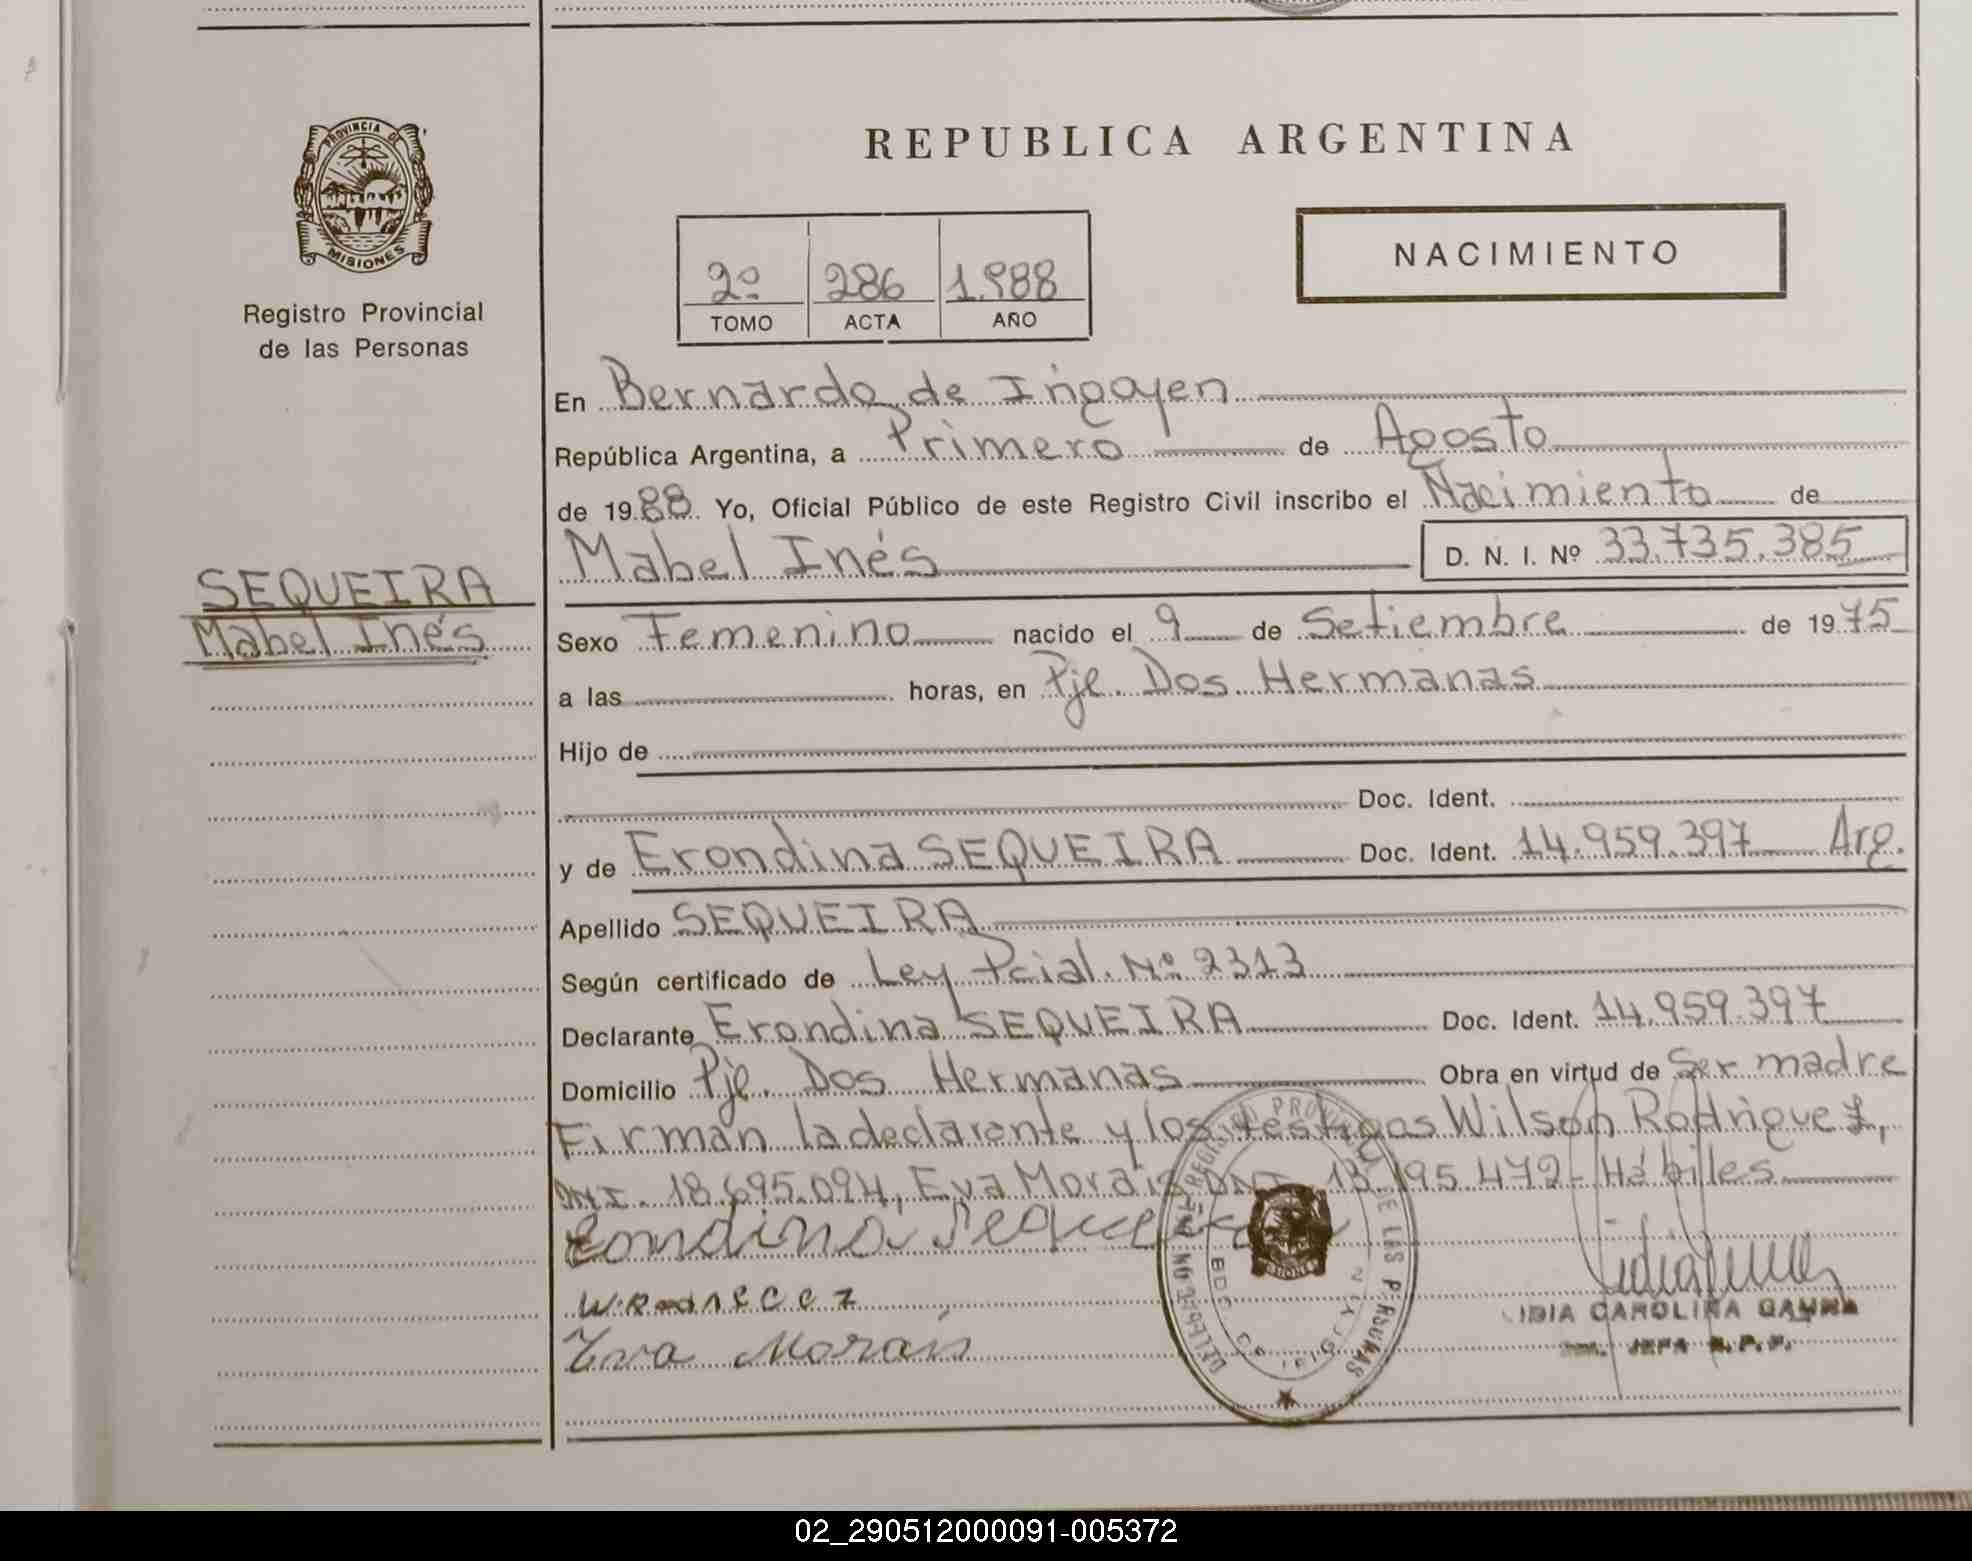 PROVINCIA DE
MISIONES
Registro Provincial
de las Personas
REPUBLICA ARGENTINA
NACIMIENTO
2º 286 1.988
TOMO ACTA AÑO
En Bernardo de Irigoyen
República Argentina, a Primero de Agosto
de 1988. Yo, Oficial Público de este Registro Civil inscribo el Nacimiento de
Mabel Inés D. N. I. Nº 33.735.385
SEQUEIRA
Mabel Inés
Sexo Femenino nacido el 9 de Setiembre de 1975
a las horas, en Pje. Dos Hermanas
Hijo de
Doc. Ident.
y de Erondina SEQUEIRA Doc. Ident. 14.959.397 Arg.
Apellido SEQUEIRA
Según certificado de Ley Pcial. Nº 2313
Declarante Erondina SEQUEIRA Doc. Ident. 14.959.397
Domicilio Pje. Dos Hermanas Obra en virtud de Ser madre
Firman la declarante y los testigos Wilson Rodriguez,
DNI. 18.695.094, Eva Morais DNI. 13.195.472 - Hábiles
Erondina Sequeira
Eva Morais
CAROLINA
02_290512000091-005372